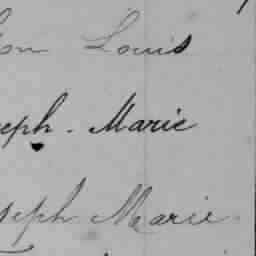 on Louis
eph. Marie
seph Marie